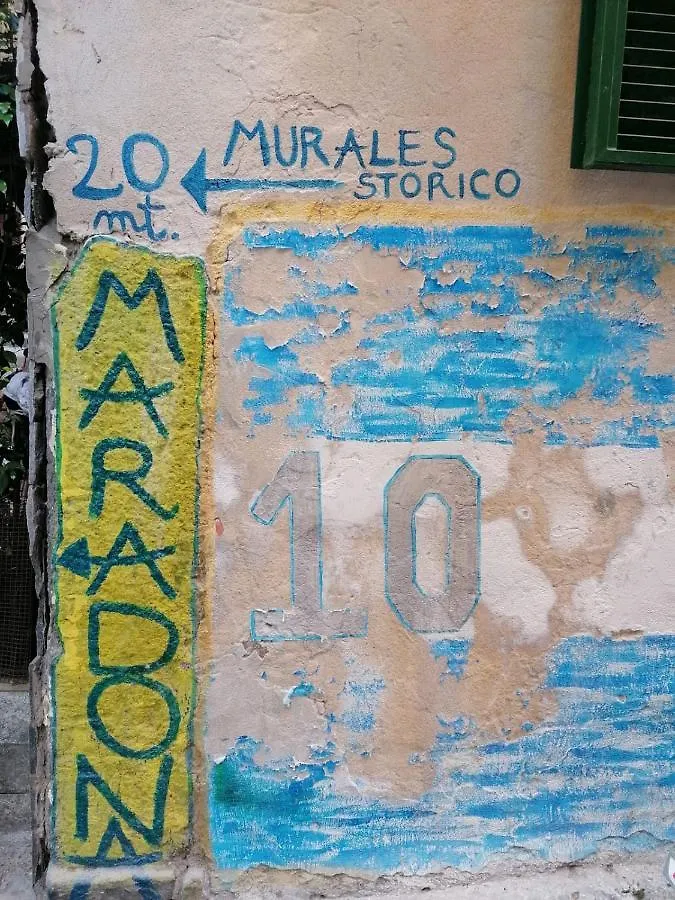 20 mt.
MURALES
STORICO
MARADONA
10